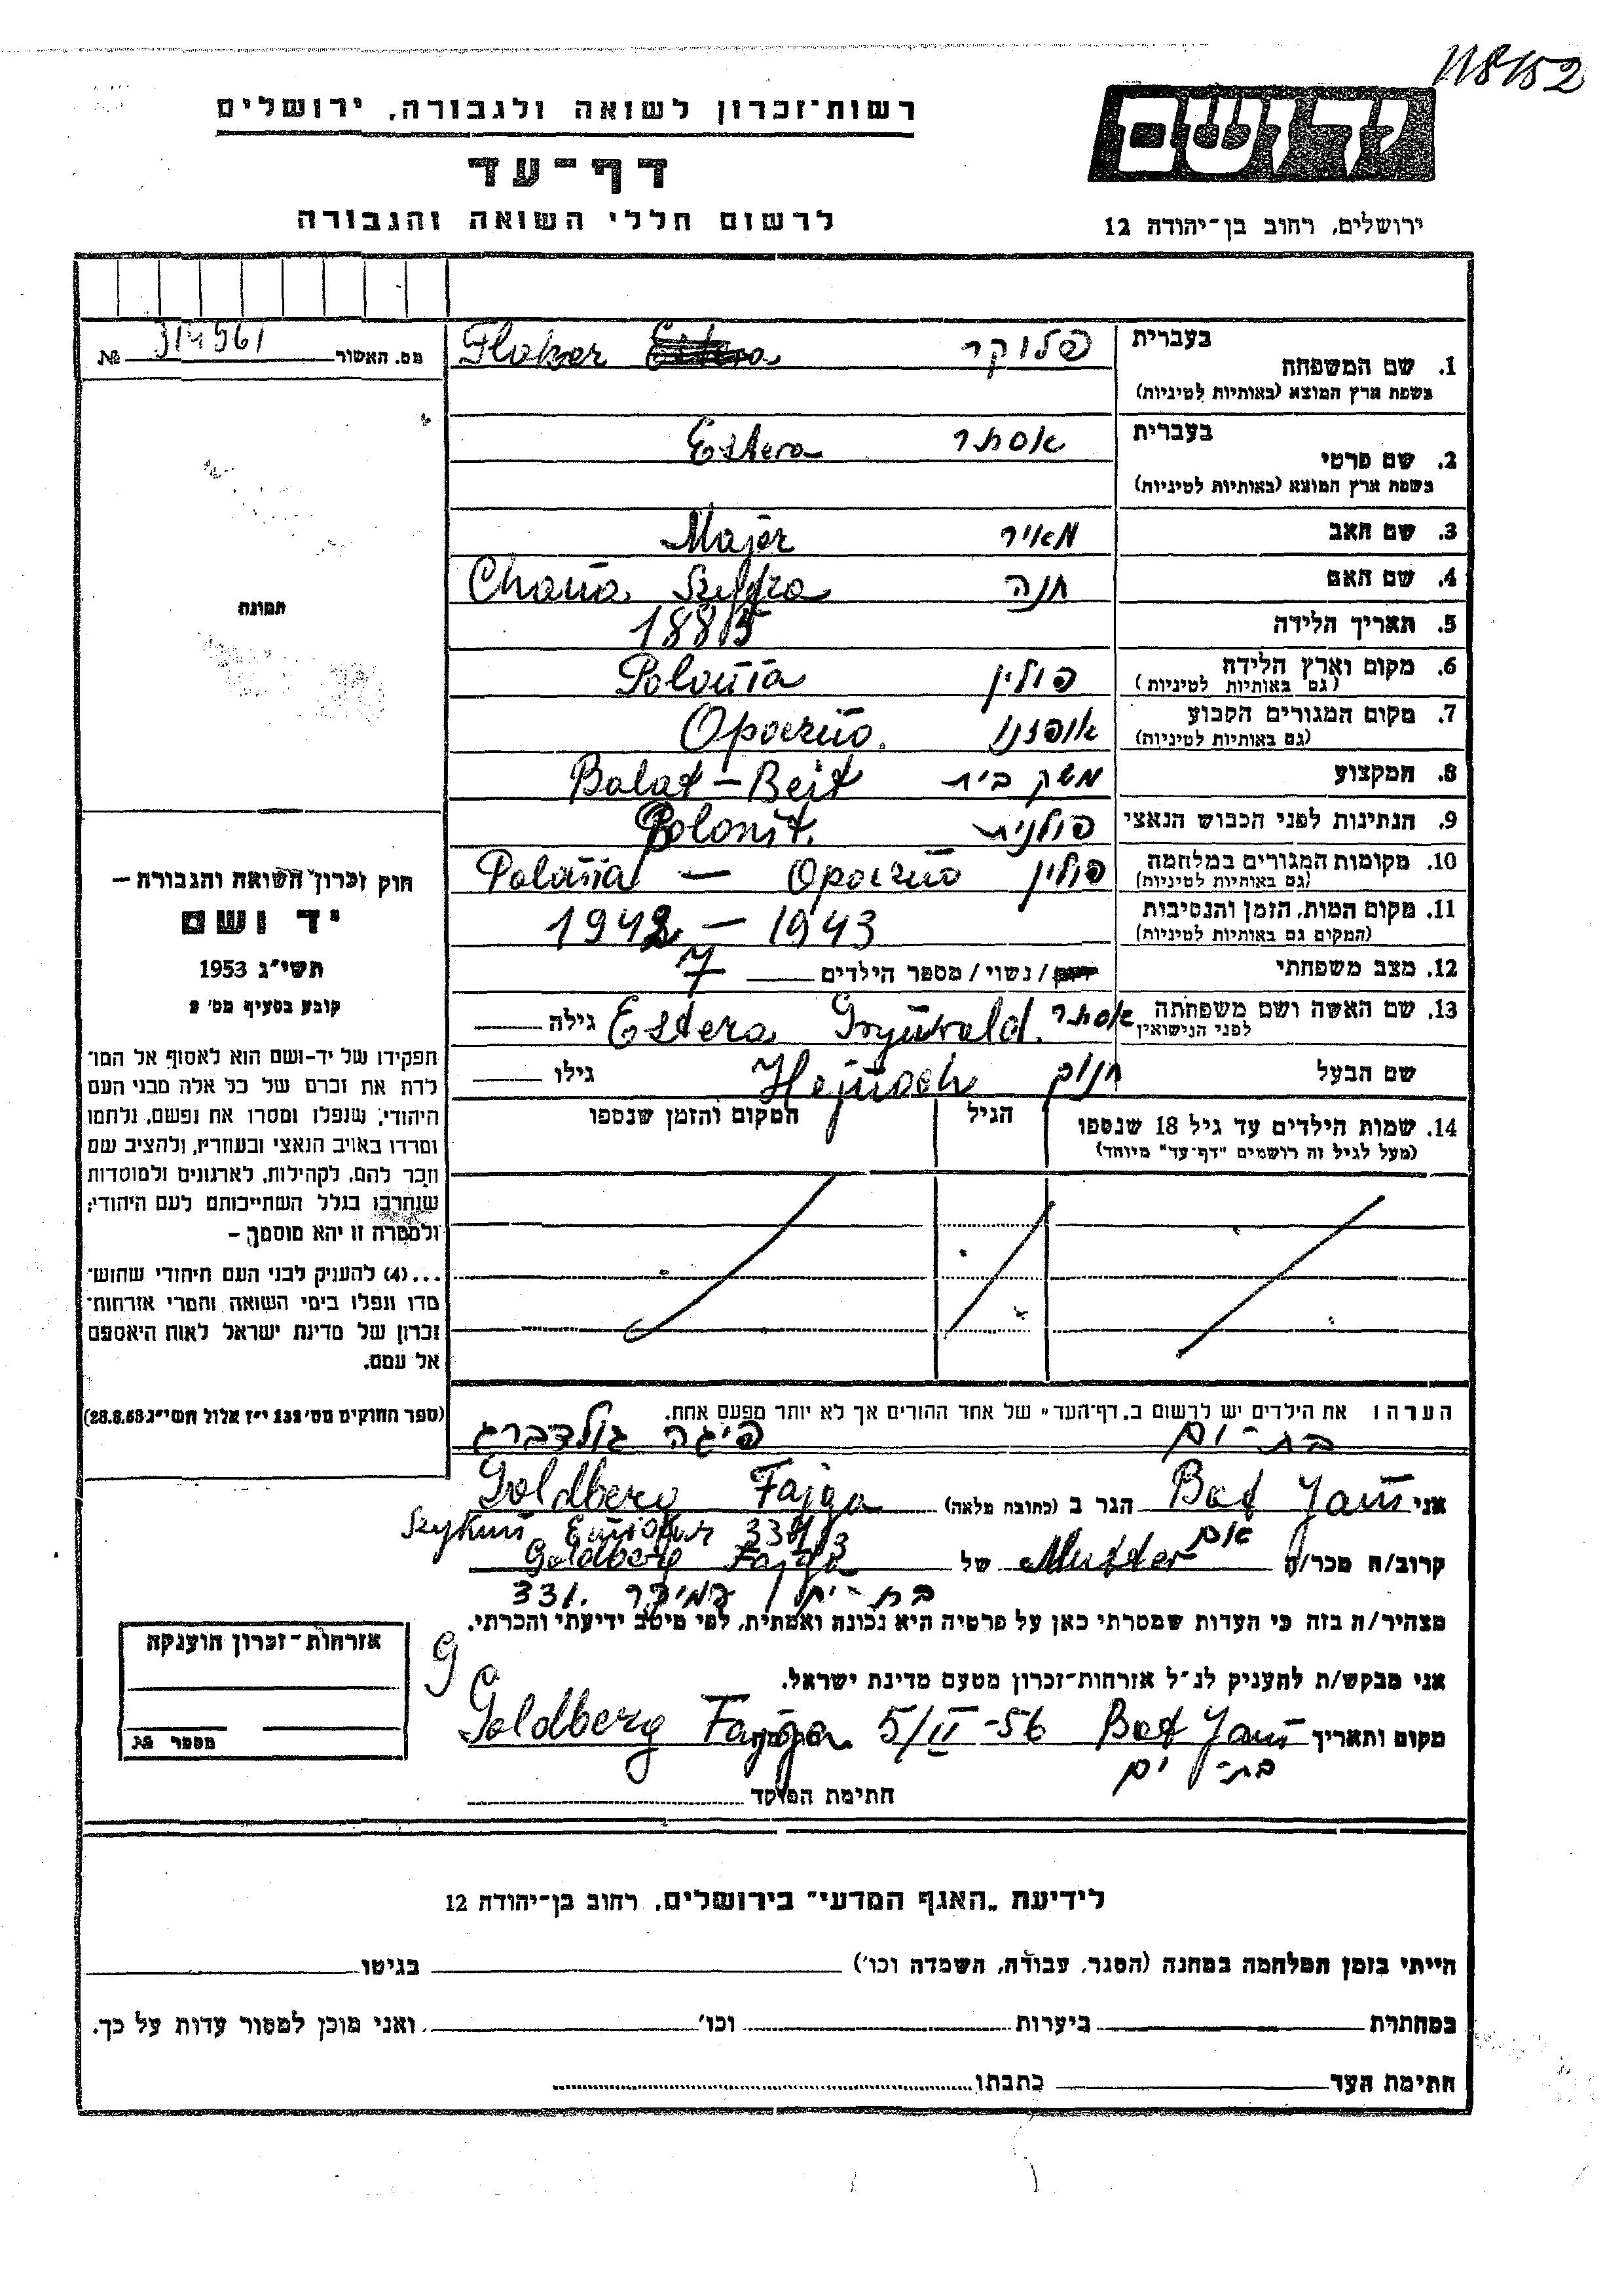 118/152
רשות-זכרון לשואה ולגבורה, ירושלים
יד ושם
דף-עד
לרשום חללי השואה והגבורה
ירושלים, רחוב בן-יהודה 12
מס. האשור 314961 №
בעברית
1. שם המשפחה פלוקר Floker
בשפת ארץ המוצא (באותיות לטיניות)
בעברית
2. שם פרטי אסתר Estera
בשפת ארץ המוצא (באותיות לטיניות)
3. שם האב מאיר Majer
4. שם האם חנה Chana
5. תאריך הלידה 1885
6. מקום וארץ הלידה פולין Polonia
(גם באותיות לטיניות)
7. מקום המגורים הקבוע אופוצנו Opoczno
(גם באותיות לטיניות)
8. המקצוע משק בית Balat-Beit
9. הנתינות לפני הכבוש הנאצי פולנית Polonit.
10. מקומות המגורים במלחמה פולין Polania – Opoczno
(גם באותיות לטיניות)
11. מקום המות, הזמן והנסיבות 1942 – 1943
(המקום גם באותיות לטיניות)
12. מצב משפחתי / נשוי / מספר הילדים 7
13. שם האשה ושם משפחתה אסתר Estera Grynwald. גילה
לפני הנישואין
שם הבעל חנוך Hejnoch גילו
14. שמות הילדים עד גיל 18 שנספו הגיל המקום והזמן שנספו
(מעל לגיל זה רושמים "דף-עד" מיוחד)
תמונה
חוק זכרון השואה והגבורה –
יד ושם
תשי"ג 1953
קובע בסעיף מס' 2
תפקידו של יד-ושם הוא לאסוף אל המו־
לדת את זכרם של כל אלה מבני העם
היהודי, שנפלו ומסרו את נפשם, נלחמו
ומרדו באויב הנאצי ובעוזריו, ולהציב שם
וזכר להם, לקהילות, לארגונים ולמוסדות
שנחרבו בגלל השתייכותם לעם היהודי;
ולמטרה זו יהא מוסמך –
...(4) להעניק לבני העם היהודי שהוש־
מדו ונפלו בימי השואה והמרי אזרחות־
זכרון של מדינת ישראל לאות היאספם
אל עמם.
(ספר החוקים מס' 132 י"ז אלול תשי"ג 28.8.53)
הערה: את הילדים יש לרשום ב"דף-העד" של אחד ההורים אך לא יותר מפעם אחת.
בת-ים פיגה גולדברג
אני Bat Yam הגר ב (כתובת מלאה) Goldberg Fajga
Szykun
אם
קרוב/ה מכר/ה Mutter של Goldberg Fajga
בת-ים עמידר 331.
מצהיר/ה בזה כי העדות שמסרתי כאן על פרטיה היא נכונה ואמתית, לפי מיטב ידיעתי והכרתי.
אני מבקש/ת להעניק לנ"ל אזרחות-זכרון מטעם מדינת ישראל.
מקום ותאריך Bat Yam 5/II-56 Goldberg Fajga
בת-ים
חתימת הפוקד
אזרחות-זכרון הוענקה
מספר №
לידיעת "האגף המדעי" בירושלים, רחוב בן-יהודה 12
הייתי בזמן המלחמה במחנה (הסגר, עבודה, השמדה וכו') בגיטו
במחתרת ביערות וכו' ואני מוכן למסור עדות על כך.
חתימת העד כתבתו